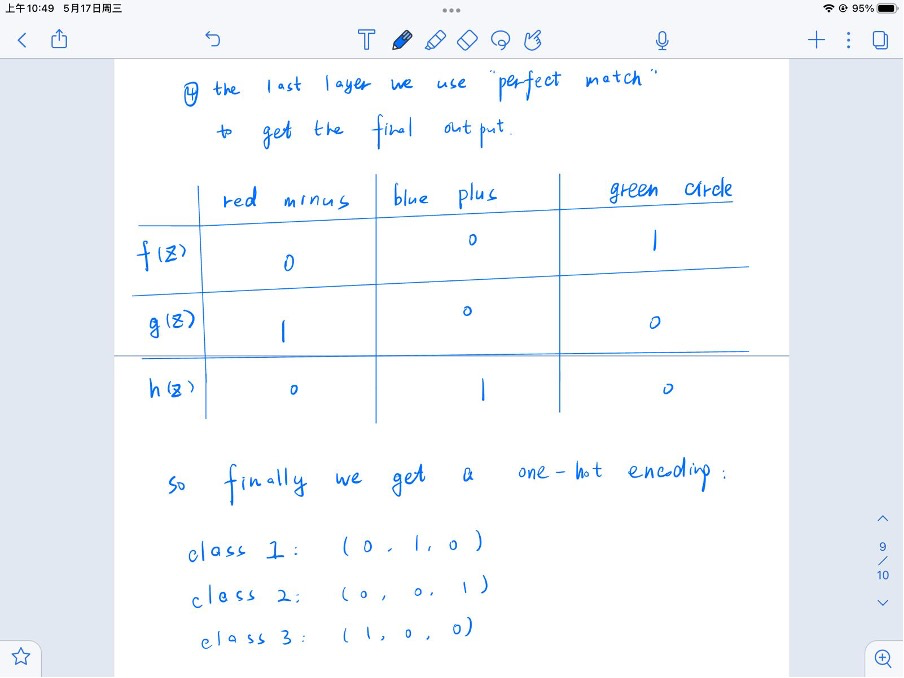 上午10:49 5月17日周三
95%
④ the last layer we use "perfect match"
to get the final output.
red minus blue plus green circle
f(z) 0 0 1
g(z) 1 0 0
h(z) 0 1 0
so finally we get a one-hot encoding:
class 1: (0, 1, 0)
class 2: (0, 0, 1)
class 3: (1, 0, 0)
9
/
10